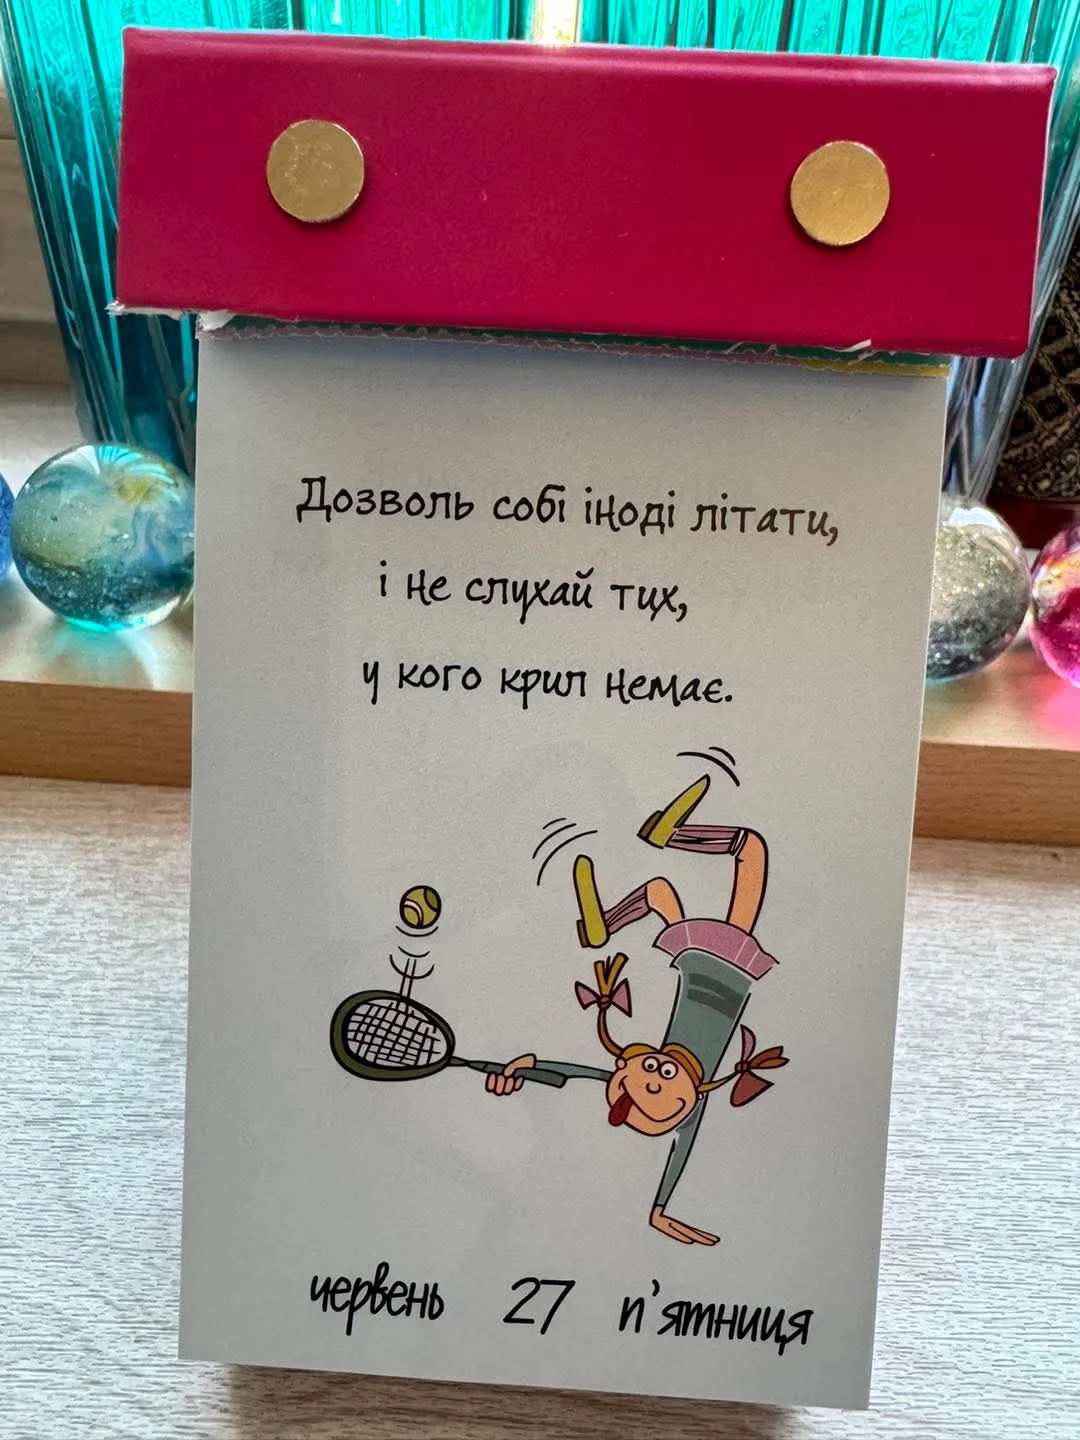 Дозволь собі іноді літати,
і не слухай тих,
у кого крил немає.
червень 27 п'ятниця